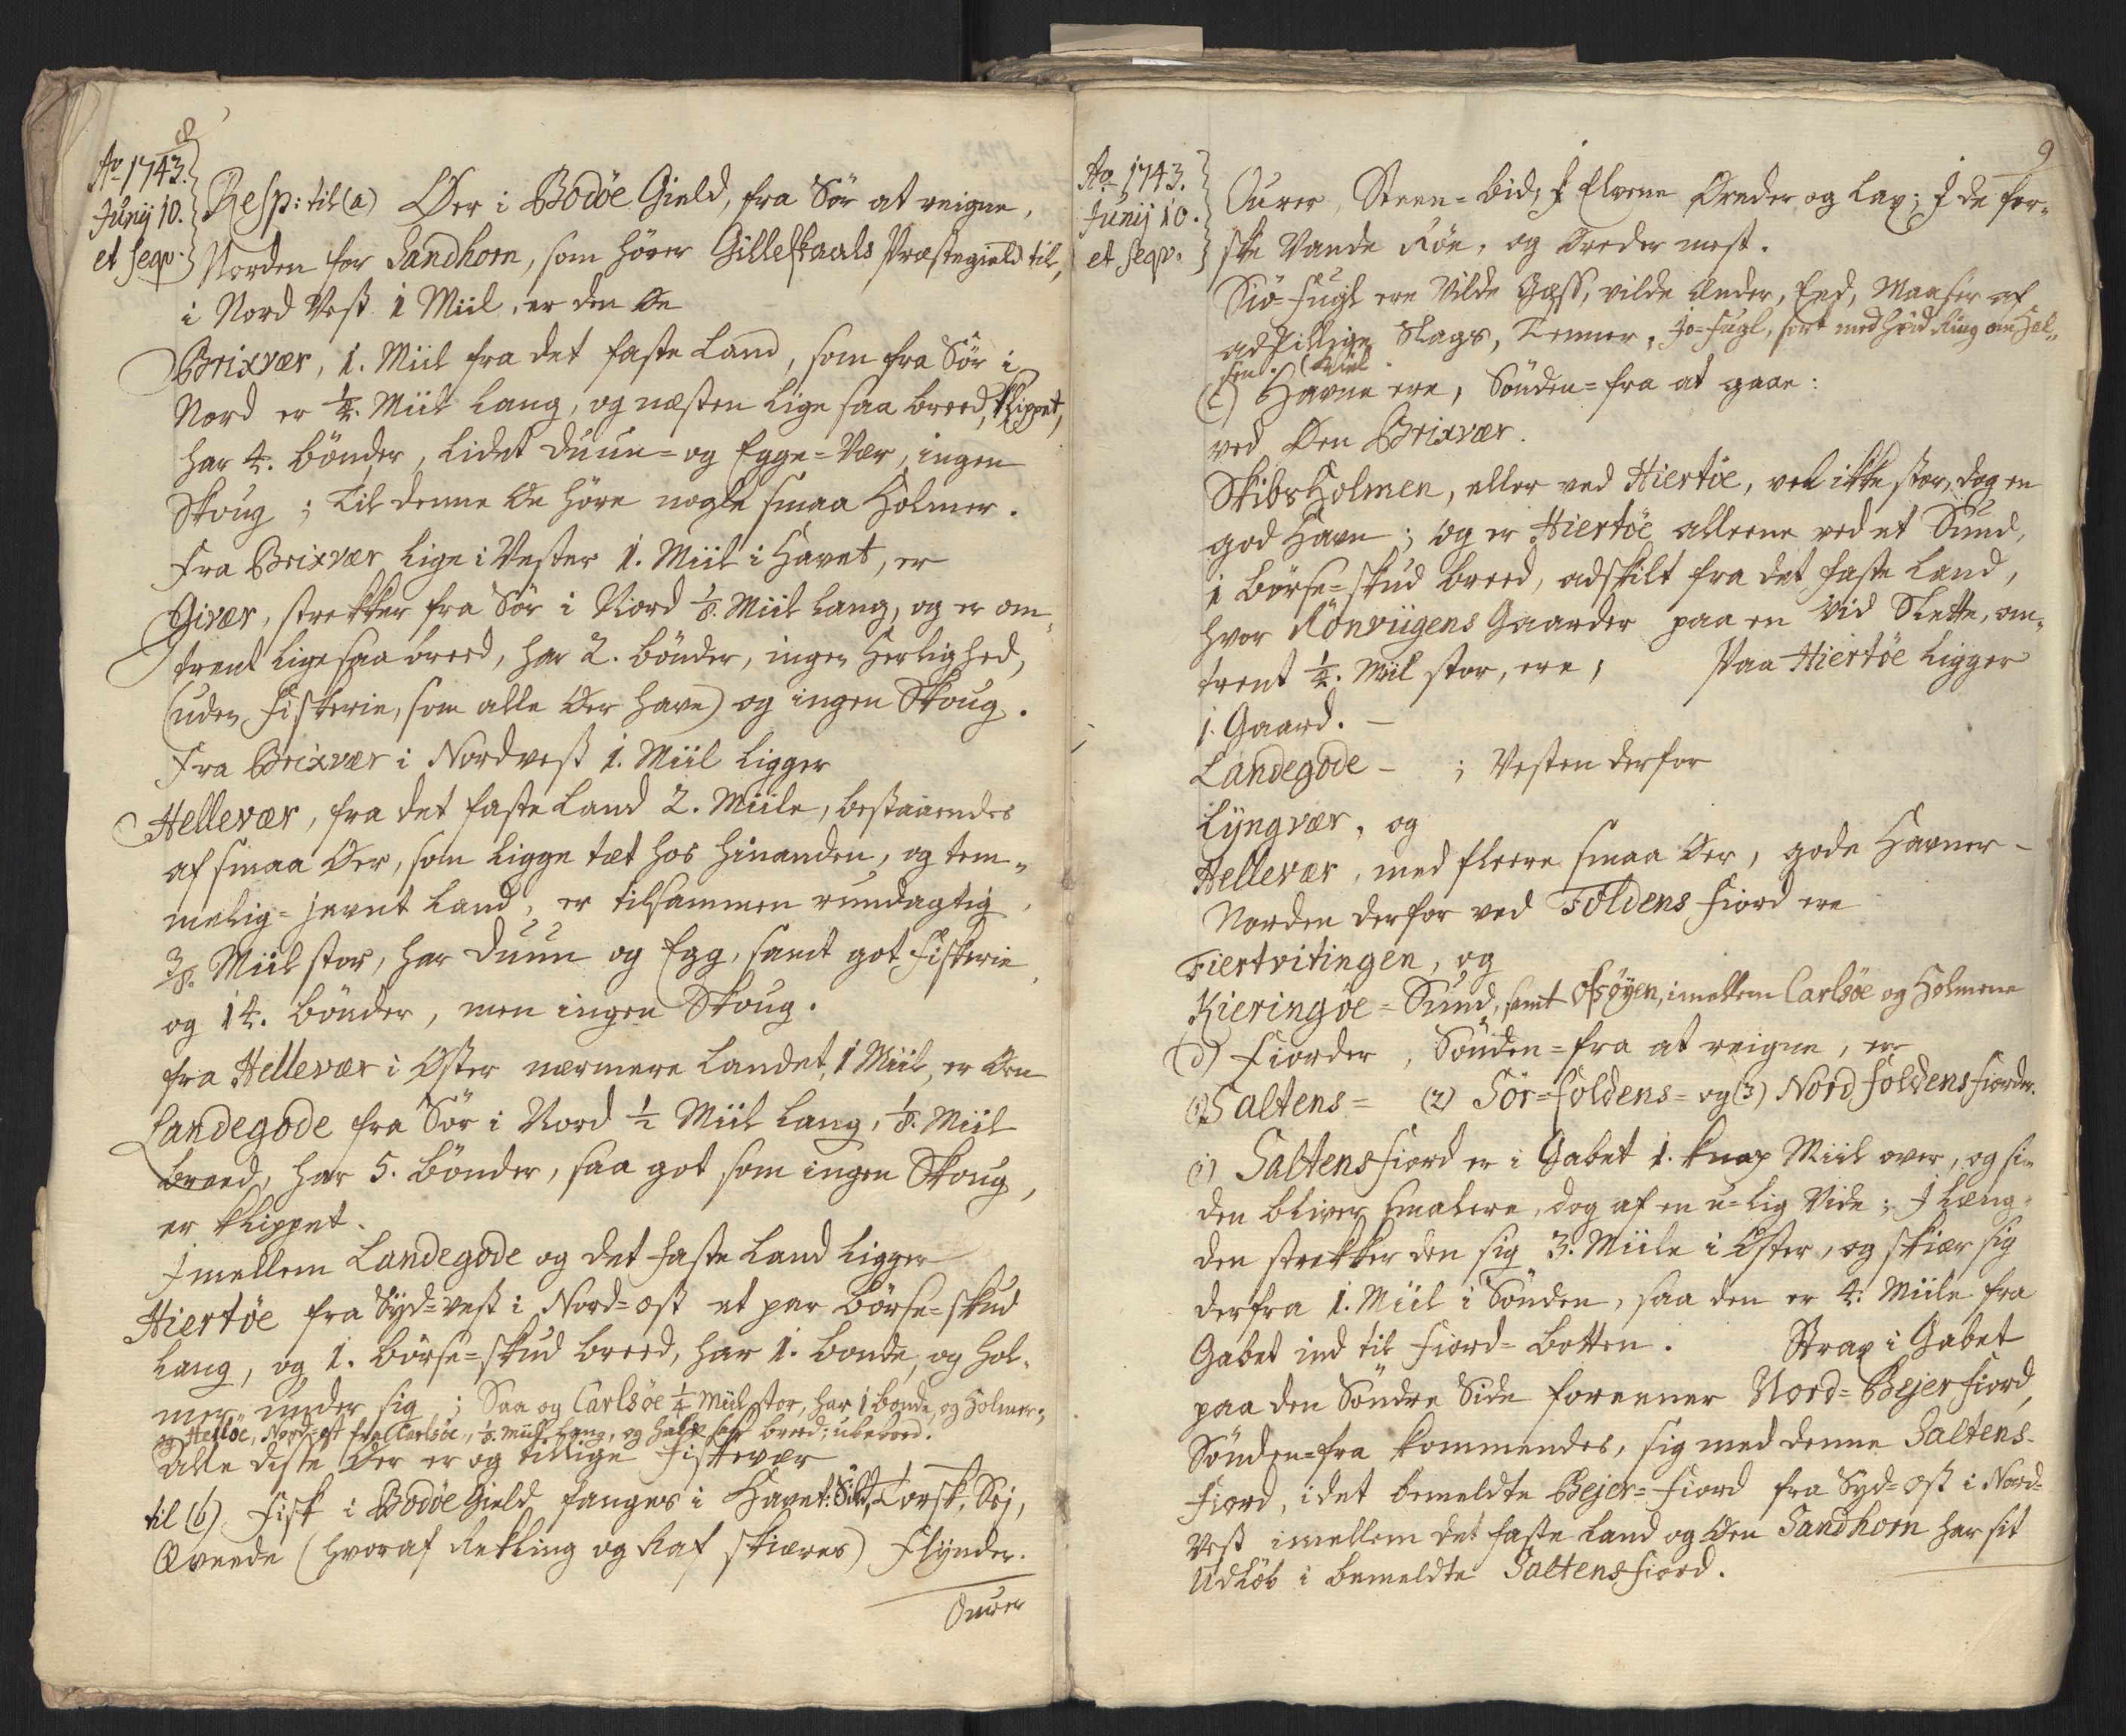 8
Ao 1743.
Junij 10.
et seqv.
Resp: til (a) Øer i Bodöe Gield, fra Sör at reigne,
Norden for Sandhorn, som hörer Gilleskaals Præstegield til,
i Nord Vest 1 Miil, er den Øe
Brixvær, 1. Miil fra det faste Land, som fra Sör i
Nord er 1/4. Miil lang, og næsten lige saa breed, klippet,
har 4. bönder, lidet Duun- og Egge-Vær, ingen
Skoug; Til denne Øe höre nogle smaa Holmer.
Fra Brixvær lige i Vester 1. Miil i Havet, er
Givær, strekker fra Sör i Nord 1/8. Miil lang, og er om-
trent lige saa breed, har 2. bönder, ingen Herlighed,
(uden Fiskerie, som alle Øer have) og ingen Skoug.
Fra Brixvær i Nordvest 1. Miil ligger
Hellevær, fra det faste Land 2. Miile, bestaaendes
af smaa Øer, som ligge tæt hos hinanden, og tem-
melig-jevnt Land, er tilsammen rundagtig
3/8. Miil stor, har Duun og Egg, samt got Fiskerie
og 14. bönder, men ingen Skoug.
Fra Hellevær i Öster nærmere Landet, 1 Miil, er Øen
Landegode fra Sör i Nord 1/2 Miil lang, 1/8. Miil
breed, har 5. bönder, saa got som ingen Skoug,
er klippet.
Jmellem Landegode og det faste Land ligger
Hiertöe fra Syd-vest i Nord-ost et par börse-skud
lang, og 1. börse-skud breed, har 1. bonde, og Hol-
mer under sig; Saa og Carlsöe 1/4 Miil stor, har 1 bonde, og Holmer;
og Helløe, Nord-ost fra Carlsöe, 1/8. Miil lang, og halv saa breed; ubeboed.
Alle disse Øer er og tillige Fiskevær
til (b) Fisk i Bodöe Gield fanges i Havet: Sild, Torsk, Sej,
Qveede (hvoraf Rekling og Raf skiæres) Flynder.
Ourer
9
Ao 1743.
Junij 10.
et seqv.
Ourer, Steen-bid; J Elvene Øreder og Lax; J de fer-
ske Vande Röe, og Öreder mest.
Siö-Fugl ere Vilde Gæss, vilde Ænder, Eed, Maaser af
adskillige Slags, Tenner, Jo-Fugl, sort med hvid Ring om Hal-
sen.
(c) Havne ere, Sönden-fra at gaae:
ved Øen Brixvær.
SkibsHolmen, eller ved Hiertöe, vel ikke stor, dog en
god Havn; og er Hiertöe alleene ved et Sund,
1 börse-skud breed, adskilt fra det faste Land,
hvor Rönviigens Gaarder paa en vid Slette, om-
trent 1/4. Miil stor, ere; Paa Hiertöe ligger
1. Gaard. –
Landegode – ; Vesten derfor
Lyngvær, og
Hellevær, med fleere smaa Øer, gode Havner –
Norden derfor ved Foldens Fiord ere
Fiertvitingen, og
Kieringöe-Sund, samt Ofsøyen, imellem Carlsöe og Holmene
d) Fiorder, Sönden-fra at reigne, ere
(1) Saltens- (2) Sör-Foldens- og (3) Nord Foldens Fiorder.
1) Saltens Fiord er i Gabet 1. knap Miil over, og si-
den bliver smalere, dog af en u-lig Vide; J Læng-
den strekker den sig 3. Miile i Öster, og skiær sig
derfra 1. Miil i Sönden, saa den er 4. Miile fra
Gabet ind til Fiord-Botten. Strax i Gabet
paa den Söndre Side foreener Nord-Bejerfiord,
Sönden-fra kommendes, sig med denne Saltens-
Fiord, idet bemeldte Bejer-Fiord fra Syd-ost i Nord-
Vest imellem det faste Land og Øen Sandhorn har sit
Udlöb i bemeldte Saltensfiord.